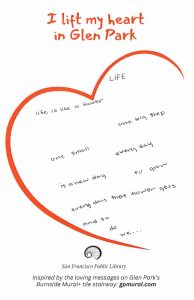 I lift my heart
in Glen Park
LIFE
life is like a flower
one big step
one small
every day
is a new day
to grow
every day that flower gets
and so
do
we...
San Francisco Public Library
Inspired by the loving messages on Glen Park's
Burnside Mural+ tile stairway: gpmural.com